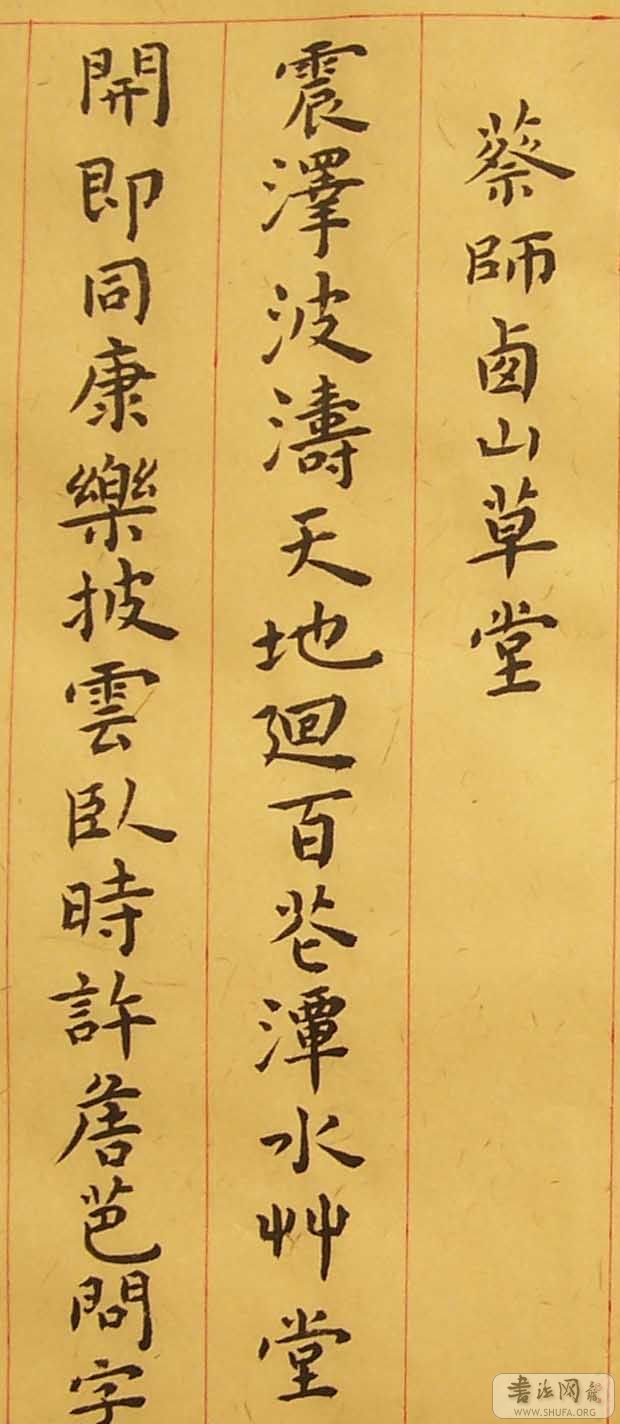 蔡師卥山草堂
震澤波濤天地迴百花潭水艸堂
開即同康樂披雲臥時許矦芭問字
書法网
WWW.SHUFA.ORG